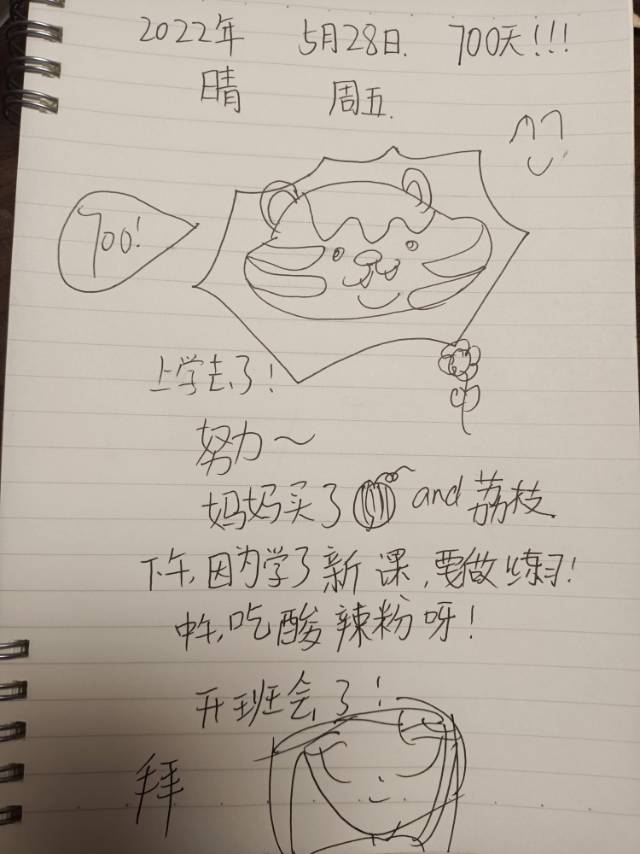 2022年 5月28日. 700天!!!
晴 周五.
700!
上学去了!
努力~
妈妈买了 and 荔枝
下午,因为学了新课,要做练习!
中午,吃酸辣粉呀!
开班会了!
拜